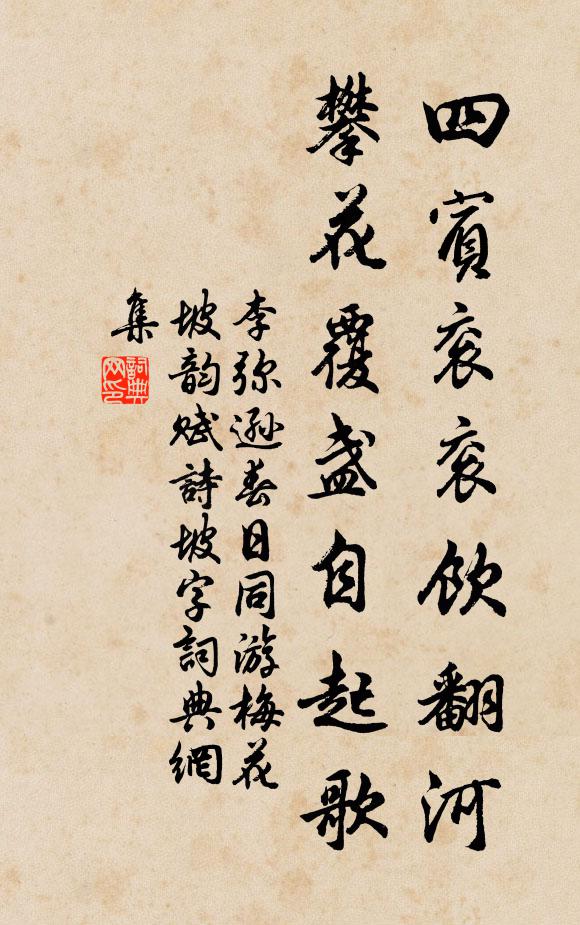 四賓衮衮飲翻河
攀花覆盞自起歌
李弥遜春日同游梅花
坡韵赋詩坡字詞典網
集
詞典網印